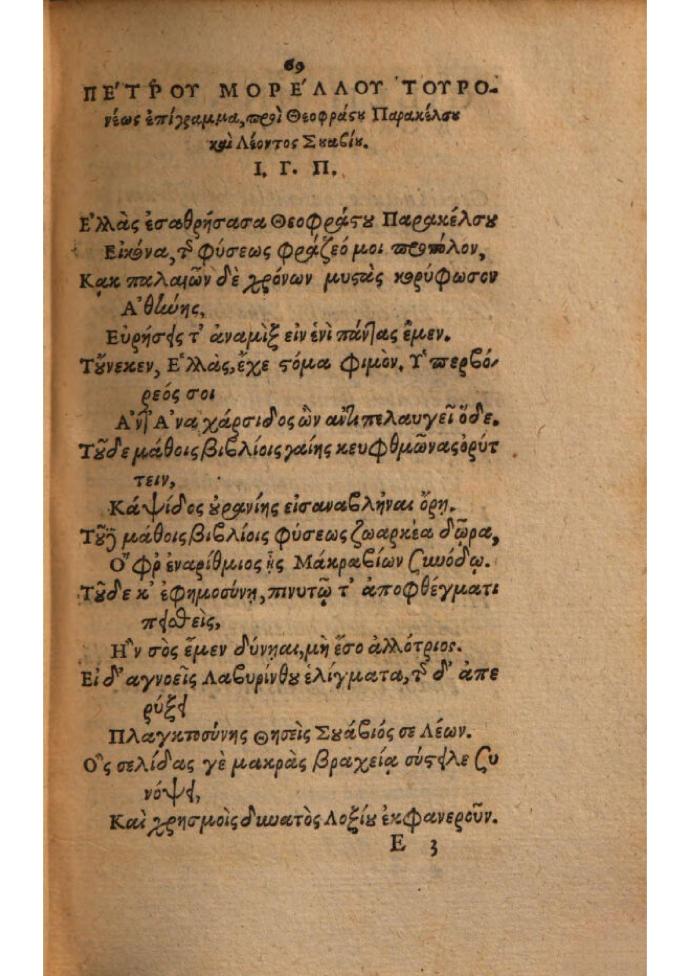 69
ΠΕ´ΤΡΟΥ ΜΟΡΕ´ΛΛΟΥ ΤΟΥΡΟ-
νέως ἐπίγραμμα, περὶ Θεοφράστου Παρακέλσου
καὶ Λέοντος Συαβίου.
Ι. Γ. Π.
Ε῾λλὰς ἐσαθρήσασα Θεοφράστου Παρακέλσου
Εικόνα, τῆς φύσεως φράζεό μοι πρόπολον,
Κακ παλαιῶν δὲ χρόνων μυστὰς κορύφωσον
Α᾿θήνης,
Ευρήσεις τ᾿ ἀναμὶξ εἰν ἑνὶ πάντας ἔμεν.
Τοὔνεκεν, Ε῾λλὰς, ἔχε στόμα φιμὸν. Υ῾περβό-
ρεός σοι
Α᾿ντ᾿ Α᾿ναχάρσιδος ὢν ἀντιπελαυγεῖ ὅδε.
Τοῦδε μάθοις βιβλίοις γαίης κευφθμῶνας ὀρύτ
τειν,
Κἀψίδος οὐρανίης εἰσαναβλῆναι ὄρη.
Τοῦδε μάθοις βιβλίοις φύσεως ζωαρκέα δῶρα,
Ο῎φρ ἐναρίθμιος ᾖς Μάκραβίων συνόδῳ.
Τοῦδε κ᾿ ἐφημοσύνη, πινυτῷ τ᾿ ἀποφθέγματι
πεισθεὶς,
Η῍ν σὸς ἔμεν δύνηαι, μὴ ἔσο ἀλλότριος.
Εἰ δ᾿ ἀγνοεῖς Λαβυρίνθου ἑλίγματα, τῆς δ᾿ ἀπε
ρύξει
Πλαγκτοσύνης Θησεὶς Συάβιός σε Λέων.
Ο῝ς σελίδας γὲ μακρὰς βραχείᾳ σύστειλε συ
νόψει,
Καὶ χρησμοὶς δυνατὸς Λοξίου ἐκφανεροῦν.
E 3